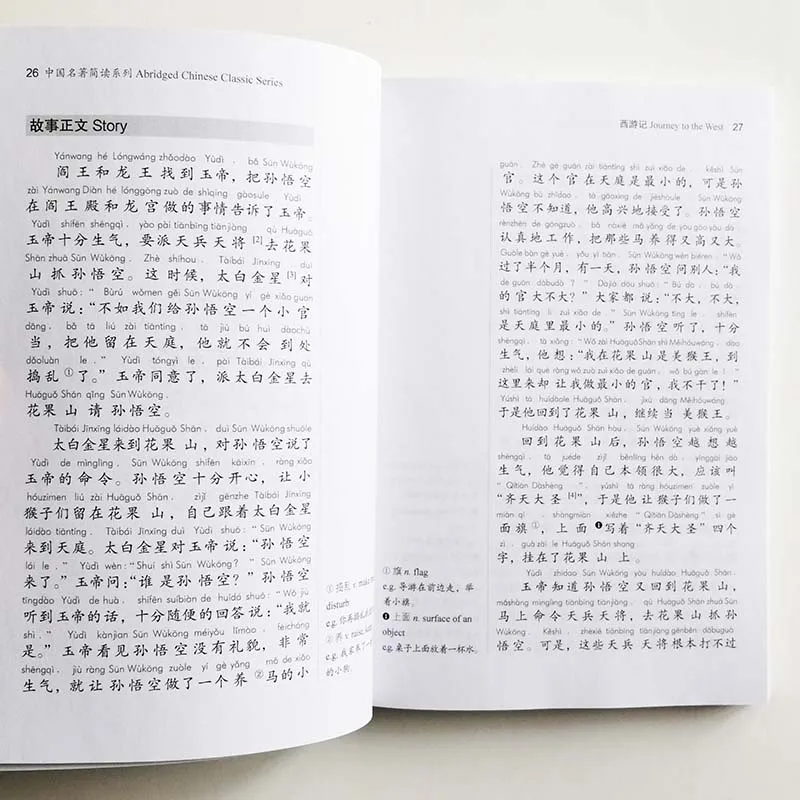 26 中国名著简读系列 Abridged Chinese Classic Series
故事正文 Story
Yánwang hé Lóngwáng zhǎodào Yùdì, bǎ Sūn Wùkōng
阎王和龙王找到玉帝，把孙悟空
zài Yánwang Diàn hé lónggōng zuò de shìqing gàosule Yùdì.
在阎王殿和龙宫做的事情告诉了玉帝。
Yùdì shífēn shēngqì, yào pài tiānbīng tiānjiàng qù Huāguǒ
玉帝十分生气，要派天兵天将[2]去花果
Shān zhuā Sūn Wùkōng. Zhè shíhou, Tàibái Jīnxīng duì
山抓孙悟空。这时候，太白金星[3]对
Yùdì shuō: “Bùrú wǒmen gěi Sūn Wùkōng yí gè xiǎo guān
玉帝说：“不如我们给孙悟空一个小官
dāng, bǎ tā liú zài tiāntíng, tā jiù bú huì dàochù
当，把他留在天庭，他就不会到处
dǎoluàn le.” Yùdì tóngyì le, pài Tàibái Jīnxīng qù
捣乱①了。”玉帝同意了，派太白金星去
Huāguǒ Shān qǐng Sūn Wùkōng.
花果山请孙悟空。
Tàibái Jīnxīng láidào Huāguǒ Shān, duì Sūn Wùkōng shuōle
太白金星来到花果山，对孙悟空说了
Yùdì de mìnglìng. Sūn Wùkōng shífēn kāixīn, ràng xiǎo
玉帝的命令。孙悟空十分开心，让小
hóuzimen liú zài Huāguǒ Shān, zìjǐ gēnzhe Tàibái Jīnxīng
猴子们留在花果山，自己跟着太白金星
láidào tiāntíng. Tàibái Jīnxīng duì Yùdì shuō: “Sūn Wùkōng
来到天庭。太白金星对玉帝说：“孙悟空
lái le.” Yùdì wèn: “Shuí shì Sūn Wùkōng?” Sūn Wùkōng
来了。”玉帝问：“谁是孙悟空？”孙悟空
tīngdào Yùdì de huà, shífēn suíbiàn de huídá shuō: “Wǒ jiù
听到玉帝的话，十分随便的回答说：“我就
shì.” Yùdì kànjiàn Sūn Wùkōng méiyǒu lǐmào, fēicháng
是。”玉帝看见孙悟空没有礼貌，非常
shēngqì, jiù ràng Sūn Wùkōng zuòle yí gè yǎng mǎ de xiǎo
生气，就让孙悟空做了一个养②马的小
西游记 Journey to the West 27
guān. Zhè gè guān zài tiāntíng shì zuì xiǎo de, kěshì Sūn
官。这个官在天庭是最小的，可是孙
Wùkōng bù zhīdào, tā gāoxìng de jiēshòule. Sūn Wùkōng
悟空不知道，他高兴地接受了。孙悟空
rènzhēn de gōngzuò, bǎ nàxiē mǎ yǎng de yòu gāo yòu dà.
认真地工作，把那些马养得又高又大。
Guòle bàn gè yuè, yǒu yì tiān, Sūn Wùkōng wèn biérén: “Wǒ
过了半个月，有一天，孙悟空问别人：“我
de guān dàbudà?” Dàjiā dōu shuō: “Bú dà, bú dà,
的官大不大？”大家都说：“不大，不大，
shì tiāntíng li zuì xiǎo de.” Sūn Wùkōng tīng le, shífēn
是天庭里最小的。”孙悟空听了，十分
shēngqì, tā xiǎng: “Wǒ zài Huāguǒ Shān shì Měihóuwáng, dào
生气，他想：“我在花果山是美猴王，到
zhèlǐ lái què ràng wǒ zuò zuì xiǎo de guān, wǒ bú gàn le!”
这里来却让我做最小的官，我不干了！”
Yúshì tā huídàole Huāguǒ Shān, jìxù dāng Měihóuwáng.
于是他回到了花果山，继续当美猴王。
Huídào Huāguǒ Shān hòu, Sūn Wùkōng yuè xiǎng yuè
回到花果山后，孙悟空越想越
shēngqì, tā juéde zìjǐ běnlǐng hěn dà, yīnggāi jiào
生气，他觉得自己本领很大，应该叫
“Qítiān Dàshèng”, yúshì tā ràng hóuzimen zuòle yí
“齐天大圣[4]”，于是他让猴子们做了一
miàn qí, shàngmian xiězhe “Qítiān Dàshèng” sì gè
面旗①，上面❶写着“齐天大圣”四个
zì, guà zài le Huāguǒ Shān shang.
字，挂在了花果山上。
Yùdì zhīdao Sūn Wùkōng yòu huídào Huāguǒ Shān,
玉帝知道孙悟空又回到花果山，
mǎshàng mìnglìng tiānbīng tiānjiàng, qù Huāguǒ Shān zhuā Sūn
马上命令天兵天将，去花果山抓孙
Wùkōng. Kěshì, zhèxiē tiānbīng tiānjiàng gēnběn dǎbuguò
悟空。可是，这些天兵天将根本打不过
① 旗 n. flag
e.g. 导游在前边走，举
着小旗。
❶ 上面 n. surface of an
object
e.g. 桌子上面放着一杯水。
① 捣乱 v.
disturb
e.g.
② 养 v.
e.g.
的小狗。